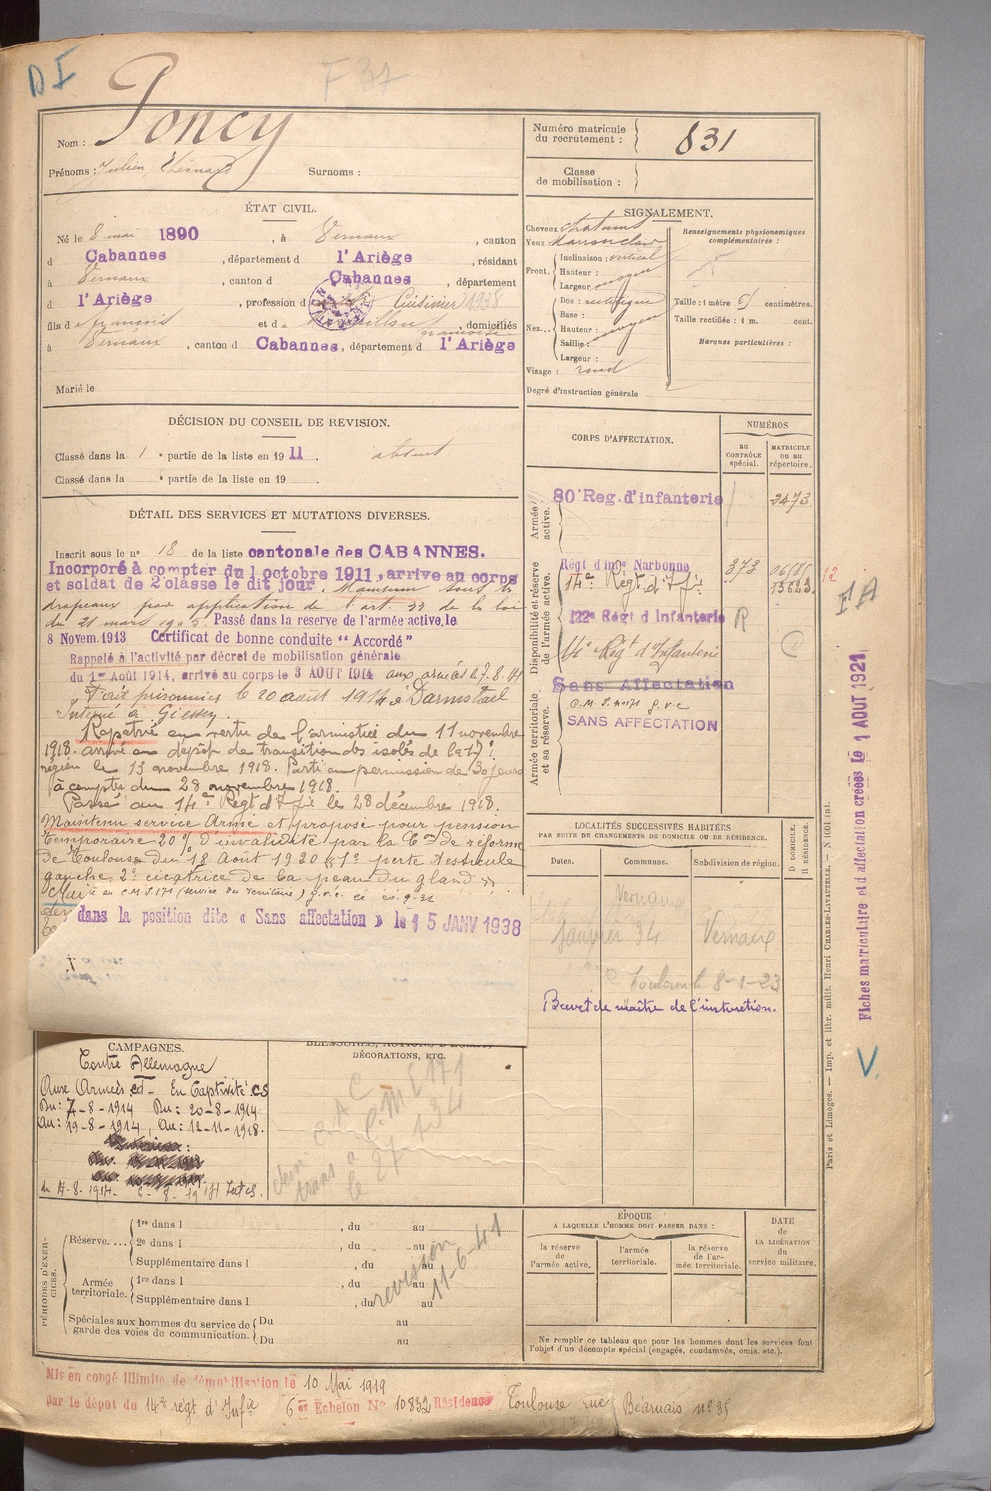 DI
F 37
Nom : Poncy
Prénoms : Julien, Surnoms :
Numéro matricule du recrutement : 831
Classe de mobilisation :
ÉTAT CIVIL.
Né le 8 mai 1890, à Vernaux, canton
d Cabannes, département d l'Ariège, résidant
à Vernaux, canton d Cabannes, département
d l'Ariège, profession d Cuisinier 1938
fils d e françois et d e, domiciliés
à Vernaux, canton d Cabannes, département d l'Ariège
Marié le
SIGNALEMENT.
Cheveux chatains
Yeux Marron clair
Front. Inclinaison : vertical
Hauteur :
Largeur : moyen
Nez... Dos : rectiligne
Base :
Hauteur : moyen
Saillie :
Largeur :
Visage : rond
Degré d'instruction générale
Renseignements physionomiques complémentaires :
Taille : 1 mètre centimètres.
Taille rectifiée : 1 m. cent.
Marques particulières :
DÉCISION DU CONSEIL DE REVISION.
Classé dans la 1 e partie de la liste en 19 11. absent
Classé dans la e partie de la liste en 19 .
DÉTAIL DES SERVICES ET MUTATIONS DIVERSES.
Inscrit sous le n° 18 de la liste cantonale des CABANNES.
Incorporé à compter du 1 octobre 1911, arrive au corps
et soldat de 2e classe le dit jour. Maintenu sous les
drapeaux par application de l'art. 33 de la loi
du 21 mars 1905. Passé dans la reserve de l'armée active, le
8 Novem. 1913 Certificat de bonne conduite "Accordé"
Rappelé à l'activité par décret de mobilisation générale
du 1er Août 1914, arrivé au corps le 3 AOUT 1914 aux armées le 7.8.14
Fait prisonnier le 20 août 1914 à
Interné à Giessen
Rapatrié en vertu de l'armistice du 11 novembre
1918. arrivé en dépôt de transition des isolés de la 17e
région le 13 novembre 1918. Parti en permission de 30 jours
à compter du 28 novembre 1918.
Passé au 14e Régt d'Inf ie le 28 décembre 1918.
Maintenu service Armé et proposé pour pension
temporaire 20% d'invalidité par la Con de réforme
de Toulouse du 18 Août 1920 1° perte testicule
gauche 2° cicatrice de la peau du gland
au C.M. I. 171 (service du territoire) g.v.c.
dans la position dite « Sans affectation » le 15 JANV 1938
CORPS D'AFFECTATION.
NUMÉROS
au CONTRÔLE spécial.
MATRICULE ou au répertoire.
Armée active.
80e Reg. d'infanterie 2473
Disponibilité et réserve de l'armée active.
Régt d'Infie Narbonne 373
14e Régt d'Inf ie 13623
122e Régt d Infanterie R
14e Régt d'Infanterie
Armée territoriale et sa réserve.
Sans Affectation
C.M. I. n°171 g.v.c
SANS AFFECTATION
12
FA
Fiches matriculaire et d'affectation créées le 1 AOUT 1921
V
LOCALITÉS SUCCESSIVES HABITÉES
PAR SUITE DE CHANGEMENTS DE DOMICILE OU DE RÉSIDENCE.
Dates. Communes. Subdivision de région. D DOMICILE. R RÉSIDENCE.
Vernaux
Janvier 34 Vernaux
Toulouse 8-1-23
Brevet de maître de l'instruction.
CAMPAGNES.
Contre Allemagne
Aux Armées CD - En Captivité CS
Du : 7-8-1914 Du : 20-8-1914
Au : 19-8-1914, Au : 12-11-1918.
BLESSURES, ACTIONS D'ÉCLAT, DÉCORATIONS, ETC.
C.M. I 171
trans à
PÉRIODES D'EXERCICES.
Réserve.... 1re dans l , du au
2e dans l , du au
Supplémentaire dans l , du au
Armée territoriale. 1re dans l , du au
Supplémentaire dans l , du au
Spéciales aux hommes du service de garde des voies de communication. Du au
Du au
revision
11-6-41
ÉPOQUE
A LAQUELLE L'HOMME DOIT PASSER DANS :
la réserve de l'armée active.
l'armée territoriale.
la réserve de l'armée territoriale.
DATE DE LA LIBÉRATION du service militaire.
Ne remplir ce tableau que pour les hommes dont les services font l'objet d'un décompte spécial (engagés, condamnés, omis, etc.).
Paris et Limoges. — Imp. et libr. milit. Henri CHARLES-LAVAUZELLE. — N° 1001 int.
Mis en congé illimité de démobilisation le 10 Mai 1919
par le dépôt du 14e régt d'Inf ie 6 er Echelon N° 10832 Résidence Toulouse rue Béarnais n° 35